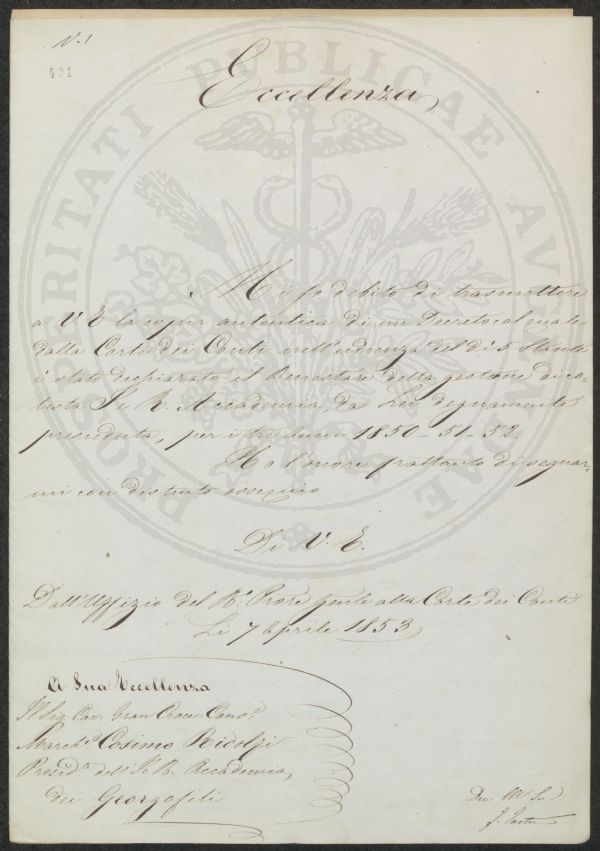 N. 1
401
Eccellenza
PROSPERITATI PUBLICAE AUGENDAE
Mi fo debito di trasmettere
a V E la copia autentica di un Decreto col quale
dalla Corte dei Conti nell'udienza del dì 5 stante
è stato dichiarato il Benestare della gestione di co=
testa I. e R. Accademia, da Lei degnamente
presieduta, per i tre anni 1850-51-52.
Ho l'onore frattanto di segnar=
mi con distinto ossequio
Di V. E.
Dall'Uffizio del R.º Prore gente alla Corte dei Conti
Li 7 Aprile 1853
A Sua Eccellenza
Il Sig. Cav. Gran Croce Cons.
March.e Cosimo Ridolfi
Presid.e dell'I. e R. Accademia,
dei Georgofili